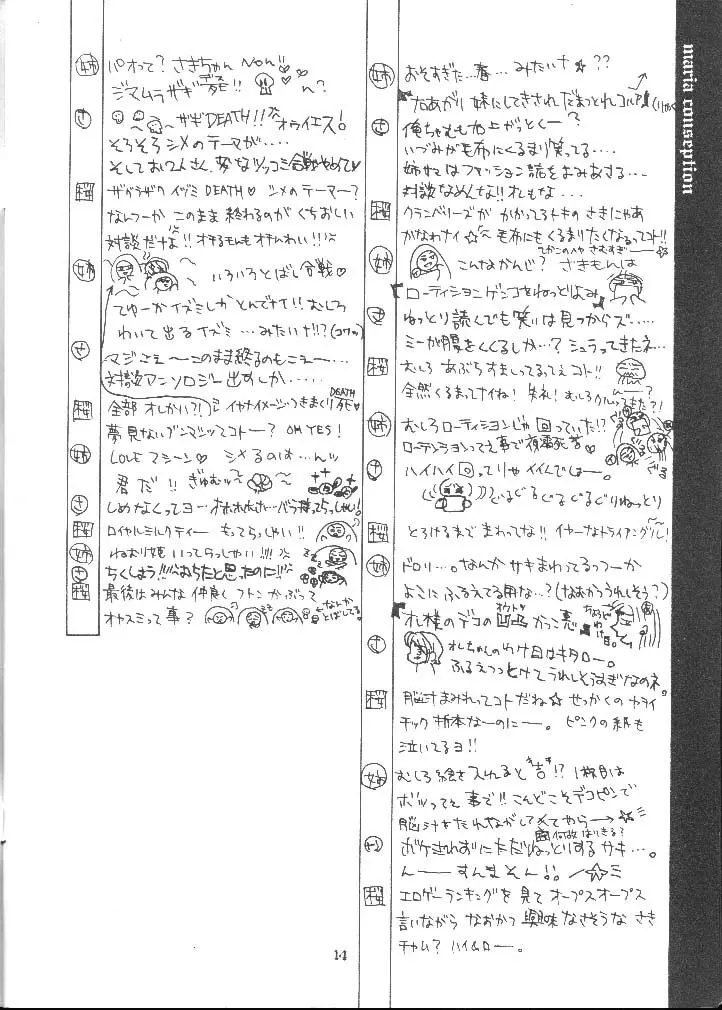 maria conseption
姉 おそすぎた…春…みたいナ☆??
さ 俺ちゃむも加上がっとくー?
いづみが毛布にくるまり笑ってる....
姉ねはファッション誌をよみあさる...
対談なめんな!!オレもな...
桜 クランベリーズが かかってるトキの さきにゃあ
がなわナイ☆〜 毛布にもくるまりたくなるってコト!!
姉 こんなかんじ? さきもんは
ローティションゲンコをねっとりよみ
さ ねっとり読んでも笑いは見つからズ.....
ミーが腹をくくるしか...? シュラってきたネ...
桜 むしろ あぶら すましてるってえ コト!!
全然くるまってナイね! 失礼!
姉 むしろローティションじゃ 回っていた!?
さ ハイハイ回ってりゃ イイんでしょー。
ぐるぐるぐるぐるぐるりねっとり
桜 とろけるまで まわってな!! イヤーなトライアングル!
姉 ドロリ...。なんか サキまわってるっつーか
よこに ふるえてる用な...? (なおかつうれしそう?)
オレ様のデコの凹凸かっこ悪
さ オレちゃんのわけ目はキタロー。
ふるえつつとけてうれしそうすぎなのネ。
桜 脳汁まみれってコト だね☆ せっかくの カワイ
チック 折本なーのにー。 ピンクの紙も
泣いてるヨ!!
姉 むしろ絵を入れると吉!? 1枚目は
ボツってえ 事で!! こんどこそデコピンで
脳汁をたれながしてくてやら→☆ミ
さ ボケきれずにただねっとりするサキ...。
んーーすんません!! ☆ミ
桜 エロゲーランキングを 見て オープスオープス
言いながら なおかつ 興味 なさそうな さき
チャム? ハイ&ロー。
姉 パオって? さきちゃん Non!!
ジマムラザギデス死!! ん?
さ ザギDEATH!! オゥイエス!
そろそろシメのテーマが....
そしてお2人さん、変なツッコミ合戦やめて♡
桜 ザクラザク イヅミ DEATH♡ シメのテーマー?
なんつーか このまま 終わるのが くちおしい
対談だナょ!! オチるもんも オチんわい!!
姉 いろいろとばし合戦♡
てゆーか イズミしか とんでナイ!! むしろ
わいて出る イズミ...みたいナ!!? (コワッ)
さ マジこえ〜このまま終るのもこえー...
対談アンソロジー 出すしか.....
桜 全部 オしかい?! イヤナイメージつきまくり死♡ DEATH
夢見ないブンマシッてコトー? OH YES!
姉 LOVE マシーン♡ シメるのは...んッ
君 だ!! ぎゅむッて
さ しめなくってヨ...オホホホホ...バラ様ってらっしゃい!
桜 ロイヤルミルクティー もってらっしゃい!!
姉 ねむり姫 いってらっしゃい!!!
さ ちくしょう!!おちたと思ったのに!!
桜 最後はみんな 仲良く フトン かぶって
オヤスミって事? なんかとばしてる。
14